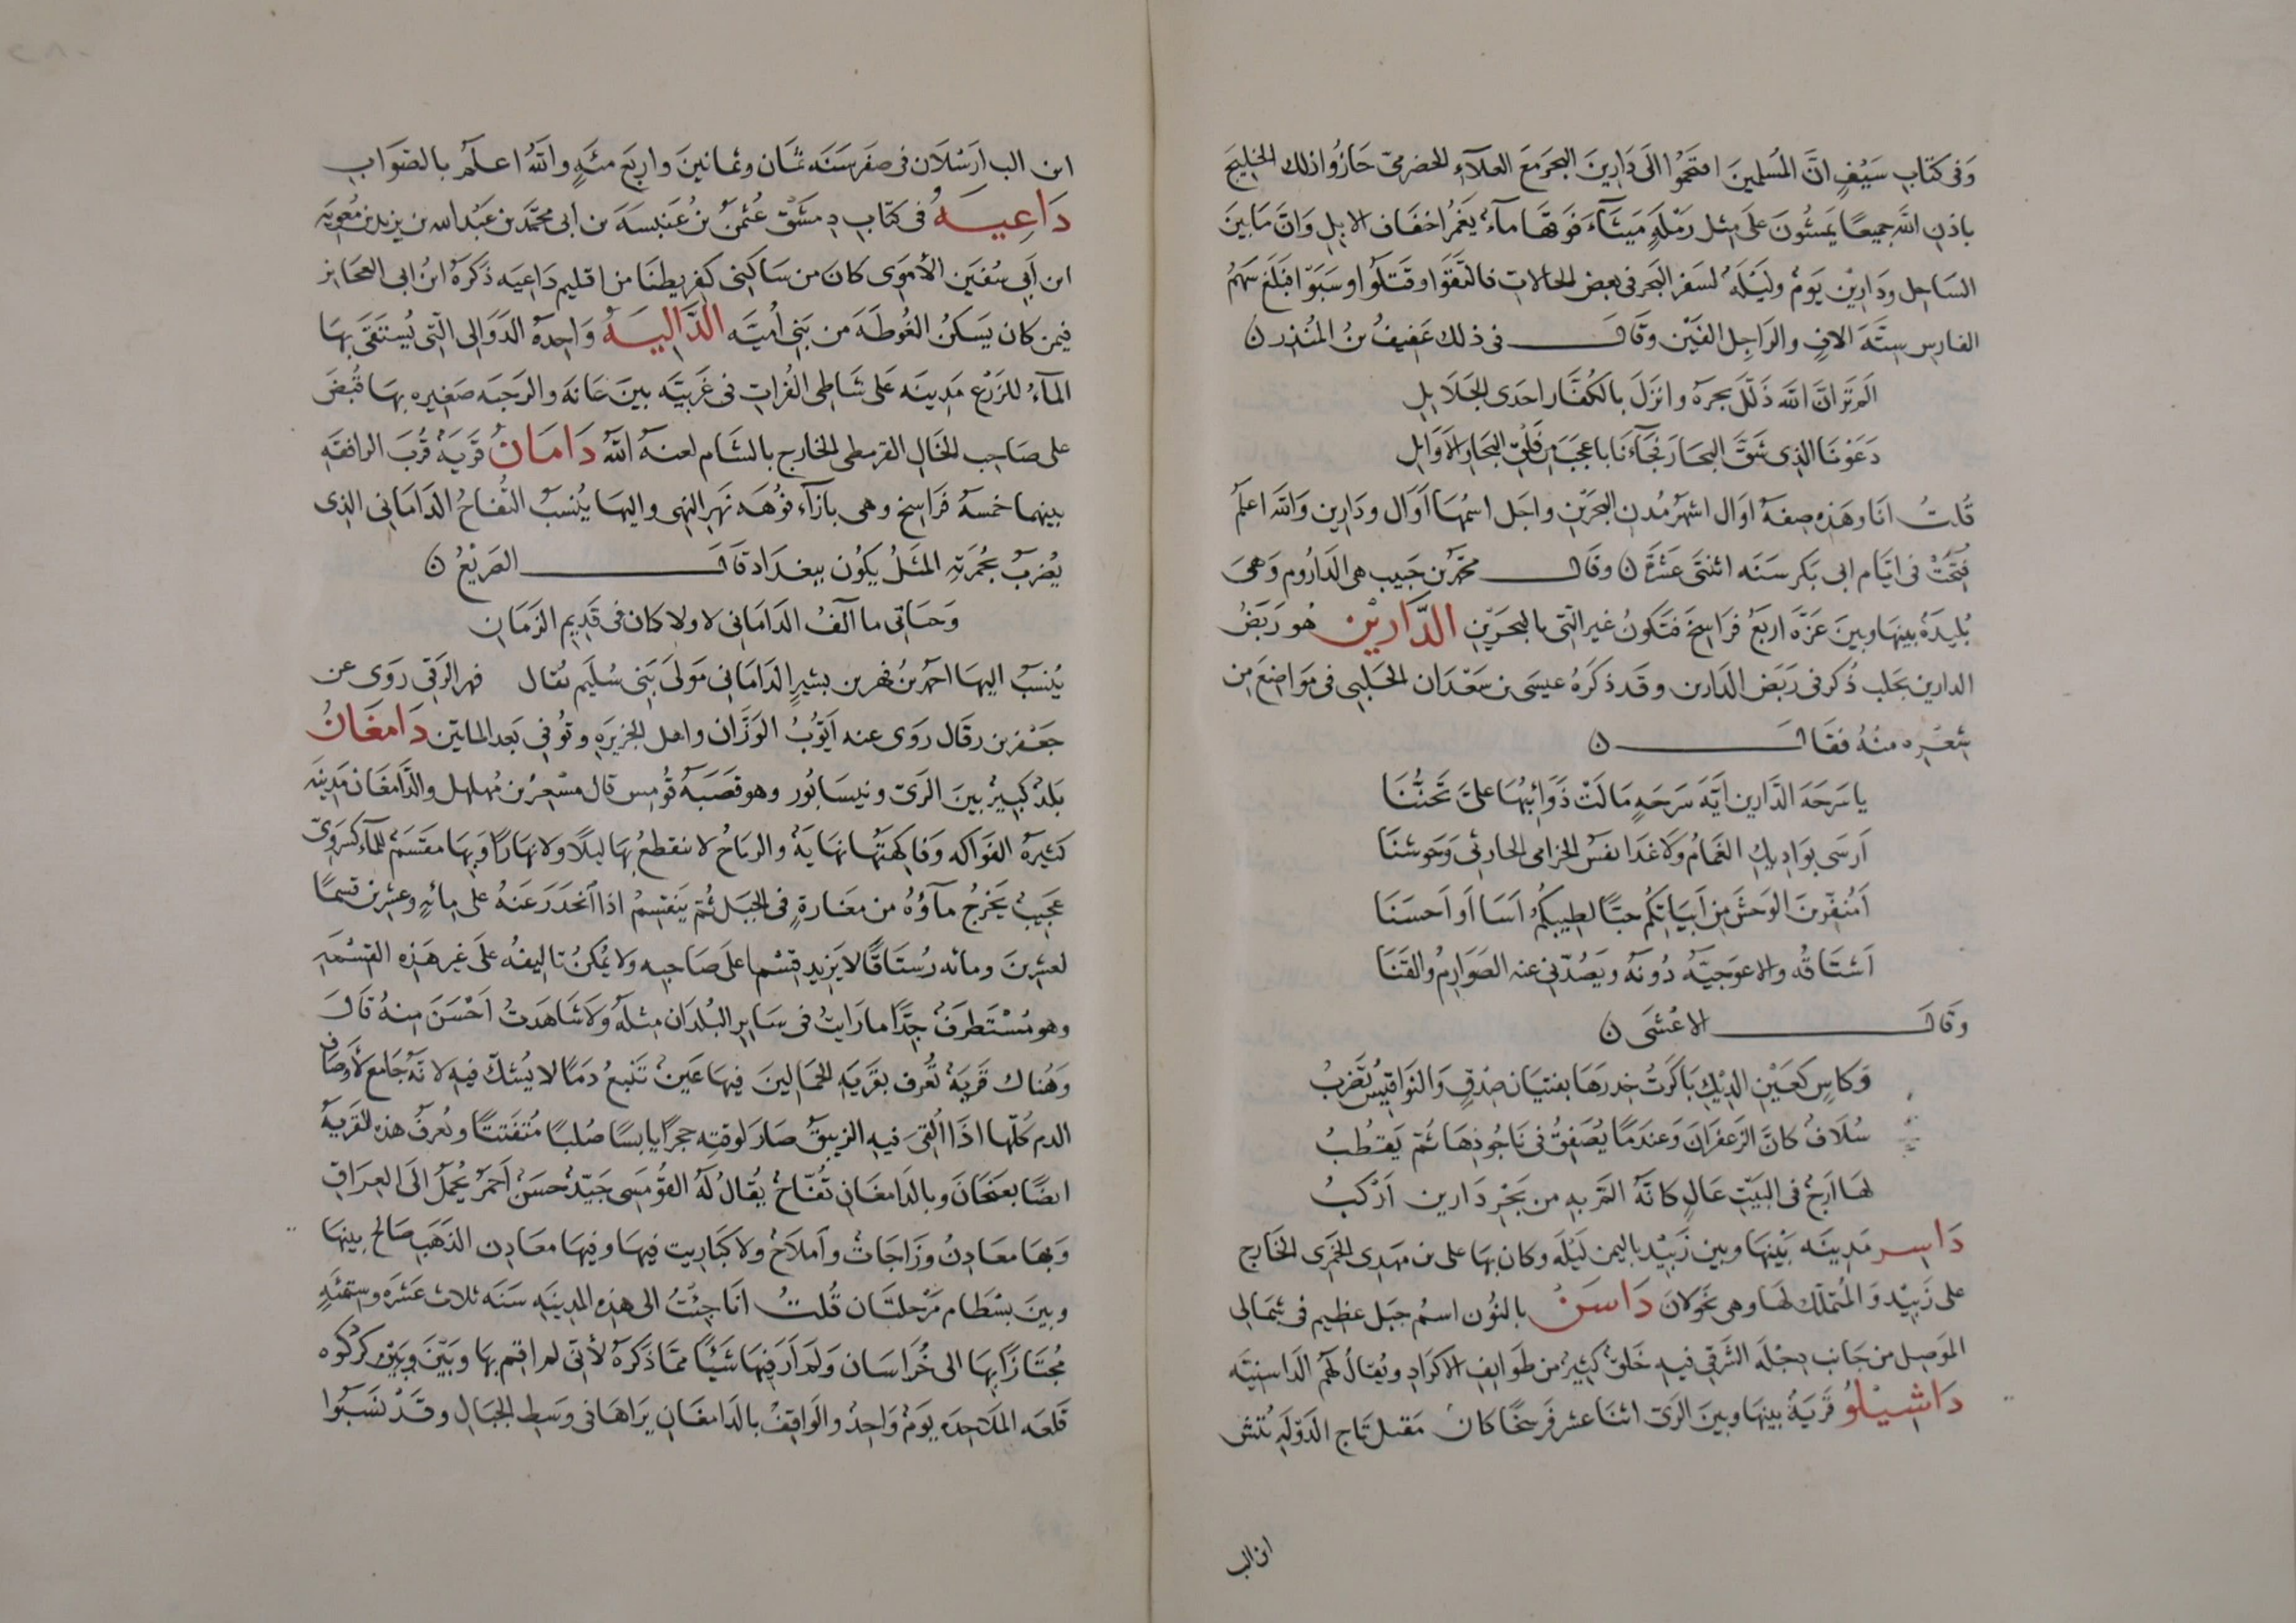 وَفى كتاب سَيْفٍ انَّ المُسلمينَ اقتحَمُوا الَى دَارِينَ البحرَ مَعَ العلآءِ الحضرمىّ حَازُوا ذلك الخليجَ
باذنِ اللهِ جميعًا يَمشُونَ عَلَى مِثل رَمْلةٍ مَيثَآءَ فَوقَهَا مآءٌ يَغمُرُ اخفَاف الابلِ وَانَّ مَا بَينَ
السَاحِل ودَارِيْن يَومٌ ولَيْلَةٌ لسَفر البَحر فى بَعض الحَالات فالتَقَوا وقَتَلُوا وسَبَوا فبَلَغَ سَهمُ
الفَارِس ستَّةَ الافٍ والرَاجِل الفَيْن وقَالَ فى ذلك عَفيفُ بنُ المُنذِر ن
الَم تَرَ انَّ اللهَ ذَلَّلَ بحرَهُ وانزَلَ بالكُفَّار احدَى الجَلَايلِ
دَعَونَا الذِى شَقَّ البحَارَ فجَآءَنَا باعجَبَ مِن فَلْقِ البحَارِ الاَوَايلِ
قُلتُ انَا وهَذِهِ صِفةُ اوَال اشهَرُ مُدن البَحرَيْنِ واجَل اسمُهَا اَوَال ودَارِين وَاللهُ اعلَمُ
فتُحَتْ فى ايَّام ابى بَكر سَنَه اثنتَى عَشْرَةَ ن وقَالَ محَمَّد بن حَبيب هى الدَارُوم وَهىَ
بُلَيدَةٌ بينهَا وبينَ غزَّه اربَعُ فرَاسِخَ فتَكونُ غير الّتى بالبحَرَيْنِ الدَّارَيْن هُو رَبَضُ
الدارين بحَلب ذُكرَ فى رَبَض الدَارين وقَد ذكَرَهُ عيسَى بن سَعْدَان الحَلبِى فى مَوَاضِعَ مِن
شِعْرِه منهُ فقَالَ ن
يا سَرحَةَ الدَّارين ايَّةَ سَرحَةٍ مَالَتْ ذَوَائبُهَا علىَّ تَحنُّنَا
اَرسَى بوَادِيكِ الغَمَامُ وَلَا غَدَا نفَسُ الخزامى الحارثى وَحَوشنَا
اَمُنَفّرينَ الوَحشَ مِن اَبيَاتكُم حبًّا لطِيبكُمُ اَسَا اَو اَحسَنَا
اَشتَاقُه والاعوَجيَّةُ دُونَهُ ويَصُدّنى عنه الصَوَارِمُ والقَنَا
وقَالَ الاعْشَى ن
وَكاسٍ كعَيْن الدِيكِ بَاكَرتُ خِدرَهَا بفتيَان صِدْقٍ وَالنَوَاقيسُ تُضرَبُ
سُلَافٌ كانَّ الزَعفرَانَ وَعَندَمًا يُصَفقُ فى نَاجُودِهَا ثُمّ يَقطُبُ
لهَا اَرَجٌ فى البَيْتِ عَالٍ كانَّهُ المَّ بهِ من بَحْرِ دَارين اَرْكَبُ
دَاسر مَدِينَه بَيْنهَا وبين زَبيْد باليمن لَيْلَه وكان بهَا على بن مَهدى الحمَيرى الخَارِج
على زَبِيْد وَالمُتَملّك لهَا وهى بخَولَانَ دَاسَنُ بالنُون اسمُ جبَل عظيم فى شمَالى
المَوصِل من جَانب دِجْلَه الشَرقى فيه خَلقٌ كثِيرٌ من طَوايف الاكرَاد ويُقالُ لهُم الدَاسنِيَّه
دَاشِيْلُوُ قَريَةٌ بينهَا وبينَ الرىّ اثنَا عشر فرسخًا كانَ مَقتل تَاج الدَوْلَةِ تُتش
ابن الب
ابن الب اَرسْلَان فى صفَر سَنَه ثمَان وثمَانينَ واربَع مئَةٍ واللهُ اعلَمُ بالصَوَابِ
دَاعِيَهُ فى كتَابِ دِمشَق عُثمٰنُ بنُ عَنبسَةَ بن ابى محَمَّد بن عَبْد الله بن يَزيد بن معٰويَه
ابن اَبِى سُفيٰن الأمَوى كانَ من سَاكِنى كفربطنَا من اقليم دَاعيَه ذَكَرَهُ ابنُ ابى العَجَايز
فيمن كان يَسكنُ الغُوطَةَ من بَنى اُميَّه الدَّاليَهُ وَاحِدَةُ الدَوَالى الّتى يُستَقَى بهَا
المآءُ للزَرْع مَدِينَه عَلى شَاطِى الفُرات فى غَربيَّه بينَ عَانه والرَحبَه صَغيره بهَا قُبضَ
على صَاحِب الخَال القرمطى الخارج بالشَام لعنَهُ اللهُ دَامَانُ قَريَةٌ قُربَ الرافقَه
بينهما خمسة فرَاسِخ وهى بازآء فُوهَه نهر النهى واليهَا يُنسَبُ التُفاحُ الدَامَانِى الذِى
يُضربُ بحُمرَتِهِ المثَلُ يَكُون ببغدَاد قَالَ الصَرِيْعُ ن
وَحَيَاتى ما آلَفُ الدَامَانى لا ولا كان فى قَدِيم الزَمَانِ
يُنسَبُ اليهَا احمَدُ بنُ فهر بن بشيرٍ الدَامَانى مَولَى بَنِى سُلَيم يُقال فهر الرَقِى رَوَى عن
جَعْفر بن رفَال رَوَى عنه اَيُّوبُ الوَزَّان واهل الجزيرَهِ وتُوفِى بَعد المايتَين دَامغَانُ
بَلدٌ كبِيرٌ بَينَ الرَىّ ونيسَابُور وهو قصَبَهُ قُومِس قال مِسْعرُ بن مُهلهل والدَّامغَان مَدِينَه
كثِيرَةُ الفَوَاكه وَفَاكِهَتهَا نهَايَةٌ والرياحُ لا تنقطعُ بهَا ليلًا ولا نهَارًا وَبهَا مقسَمٌ للمآء كسرَوىّ
عَجيبٌ يَخرُجُ مآؤُهُ من مغَارةٍ فى الجبَل ثُمّ يَنقسِمُ اذَا انحَدَرَ عَنهُ على مِائهٍ وعِشرين قسمًا
لعِشرينَ ومائه رُستَاقًا لا يَزيد قِسْم على صَاحِبه ولا يُمكِنُ تاليفُه عَلَى غير هَذِه القِسْمَهِ
وهو مُسْتَطرَفٌ جدًّا مارَايتُ فى سَايِر البُلدَان مِثلَهُ ولا شَاهَدتُ اَحْسَنَ مِنهُ قَالَ
وَهُنَاك قَريَةٌ تُعرَف بقَريَةِ الجمَالينَ فيهَا عَينٌ تَنبعُ دَمًا لا يُشكّ فيهِ لانَّهُ جَامع لأَوصَاف
الدم كُلّها اذَا اُلقىَ فيه الزيبقُ صَارَ لوقته حجرًا يابسًا صُلبًا مُتَفَتتًا وتُعرَفُ هذه القَريَةُ
ايضًا بغنجَانَ وبالدَامغَانِ تُفّاحٌ يُقالُ لَهُ القُومَسِى جَيّدٌ حسَنٌ اَحمَرُ يُحملُ الَى العِرَاقِ
وَبهَا معَادِنُ وزَاجَاتٌ واَملَاحٌ ولا كبَارِيت فيهَا وفيهَا معَادِن الذَهَب صَالح بينهَا
وبينَ بسْطَام مَرْحلتَان قُلتُ انَا جِئتُ الى هذِه المدِينَه سَنَه ثلاث عَشرَه وستمئَةٍ
مُجتَازًا بهَا الى خُرَاسَان وَلَم اَرَ فيهَا شَيْئًا ممّا ذَكَرَهُ لأنّى لم اقم بهَا وبَينَ وبَيْن كرْدكُوه
قَلعَه المَلَاحِدَه يَومٌ وَاحِدٌ والوَاقِفُ بالدَامغَان يَراهَا فى وسَط الجبَال وقَدْ نسَبُوا